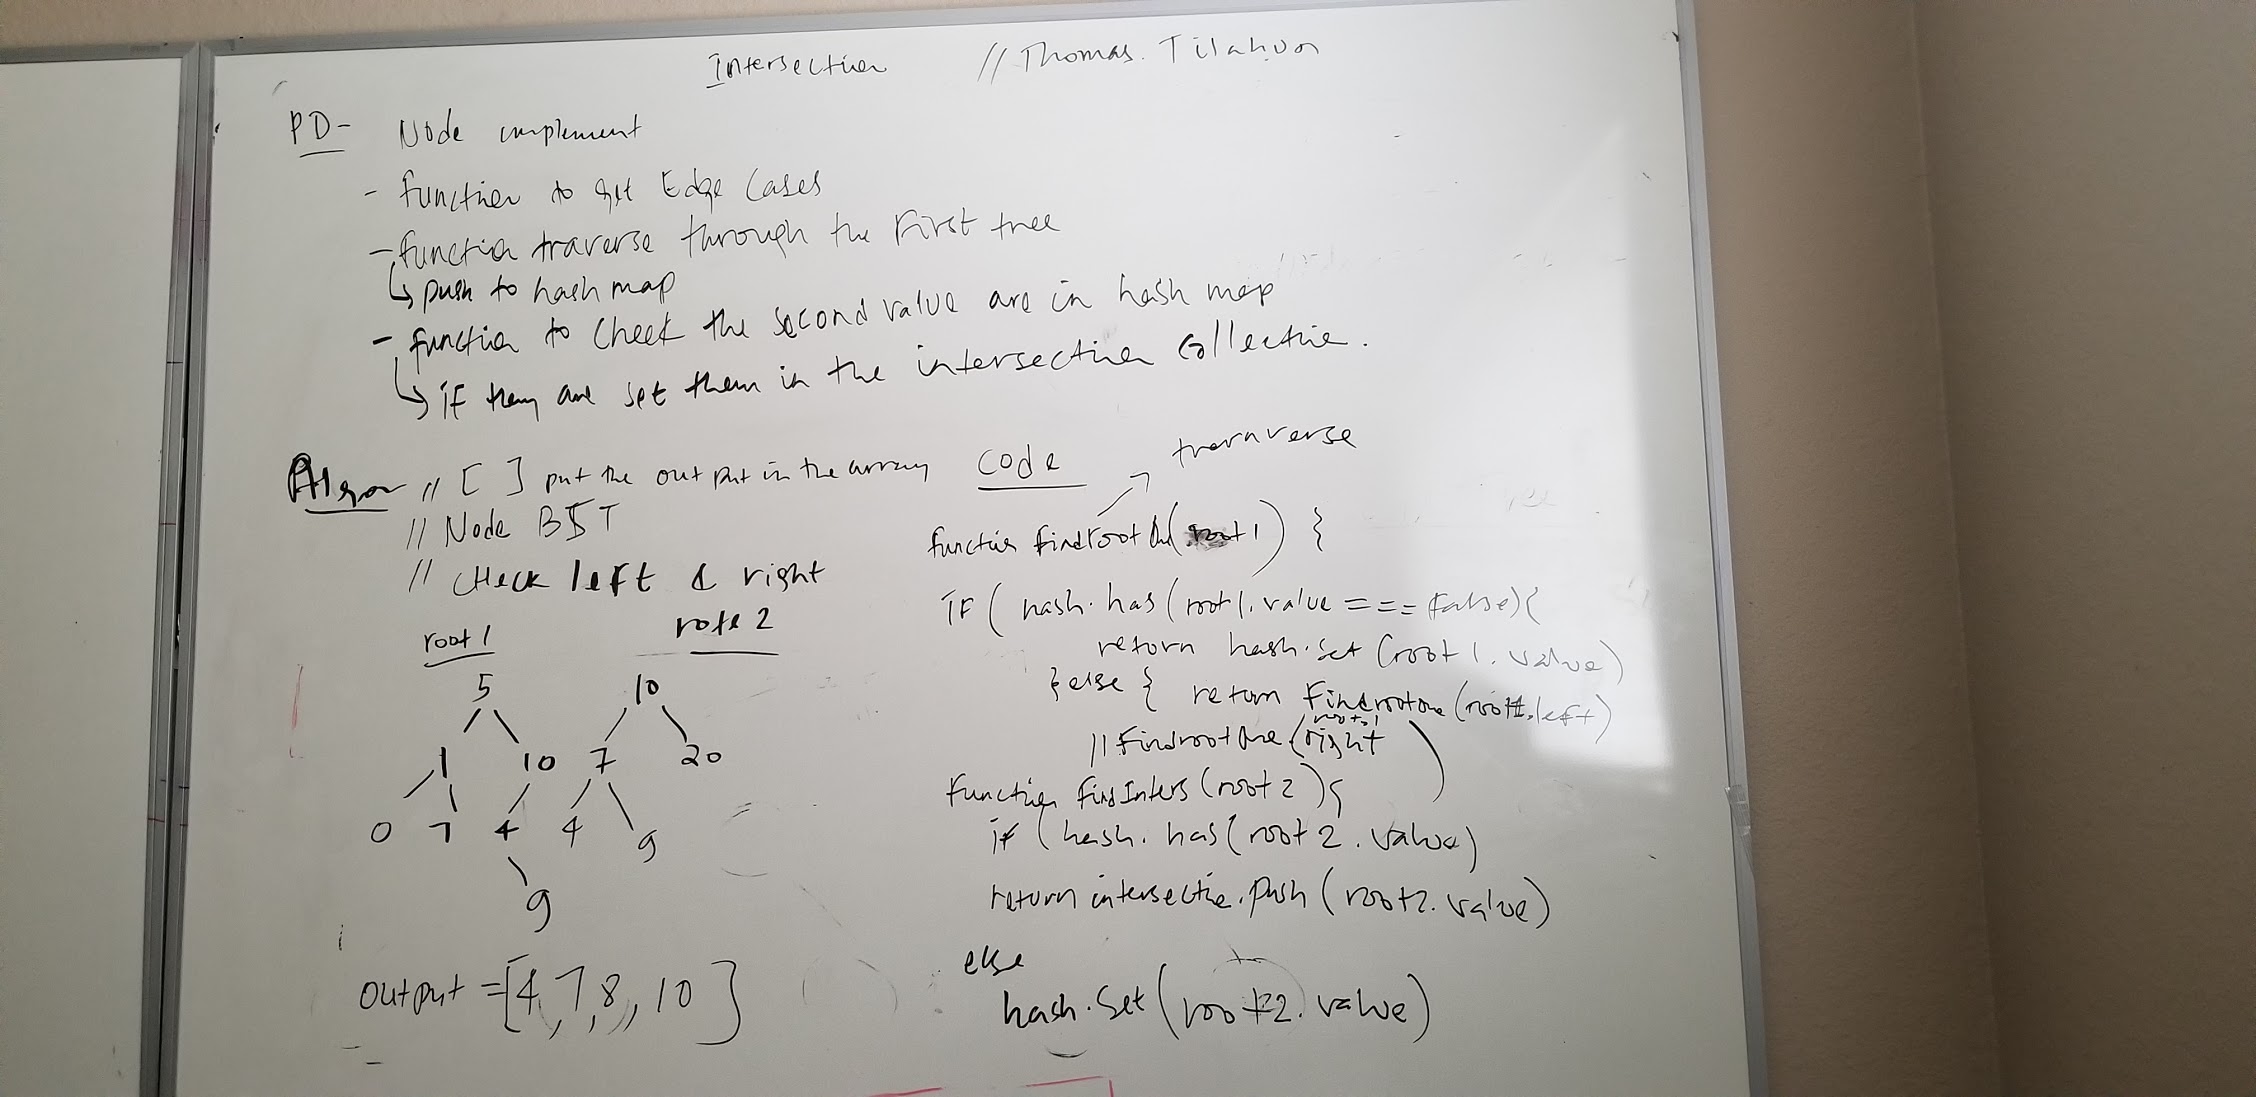 Intersection // Thomas. Tilahun
PD- Node implement
- function to get Edge Cases
- function traverse through the First tree
↳ push to hash map
- function to check the second value are in hash map
↳ if they are set them in the intersection collection.
Algor // [ ] put the out put in the array
// Node BST
// CHeck left & right
root 1
5
1 10
0 7 4
9
rote 2
10
7 20
4 9
output = [4, 7, 8, 10]
Code
traraverse
function findroot One (root 1) {
IF ( hash. has (root 1. value === false) {
return hash. set (root 1. value)
} else { return Findrootone (root1. left)
// Findroot One (root. 1 right)
Function find Inters (root 2) {
if ( hash. has (root 2. value)
return intersectie. push (root2. value)
else
hash. Set (root2. value)